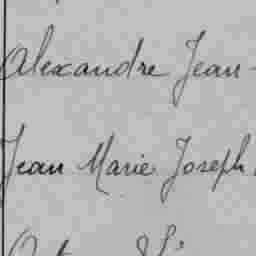 Alexandre Jean-
Jean Marie Joseph